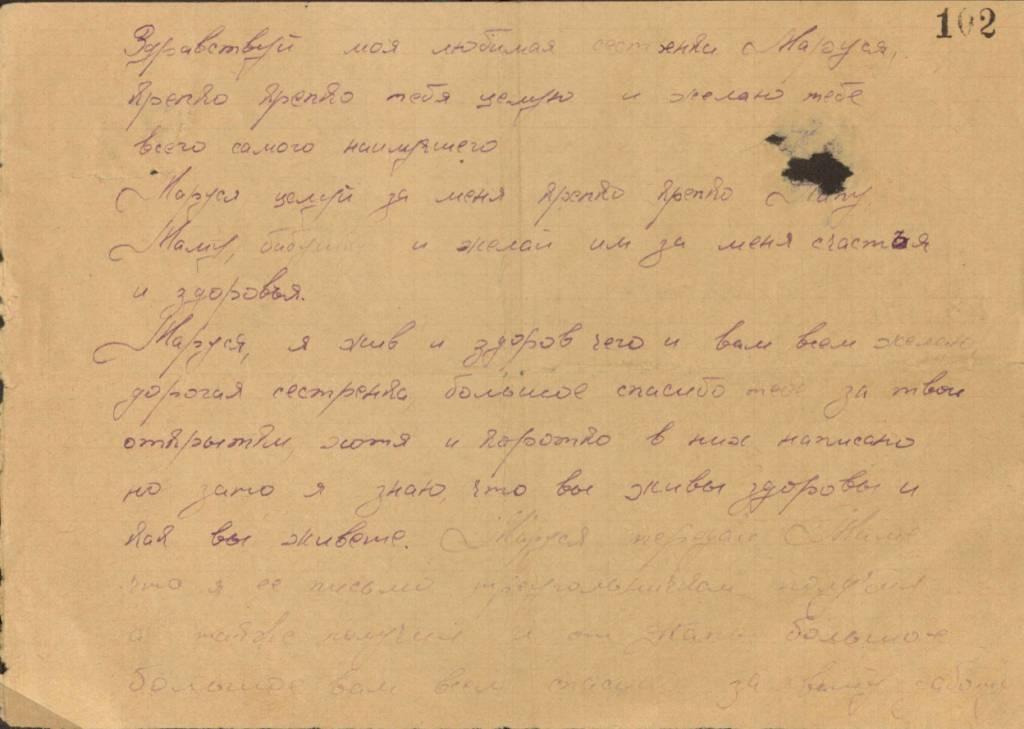 102
Здравствуй моя любимая сестжёнка Маруся,
крепко крепко тебя целую и желаю тебе
всего самого наилучшего
Маруся целуй за меня крепко крепко Папу,
Маму, бабушку и желай им за меня счастья
и здоровья.
Маруся, я жив и здоров чего и вам всем желаю
дорогая сестренка, большое спасибо тебе за твои
открытки, хотя и коротко в них написано
но зато я знаю, что вы живы здоровы и
как вы живете. Маруся передай Маме
что я ее письмо треугольничком получил
а также получил и от большое
большое вам всем спасибо за вашу заботу